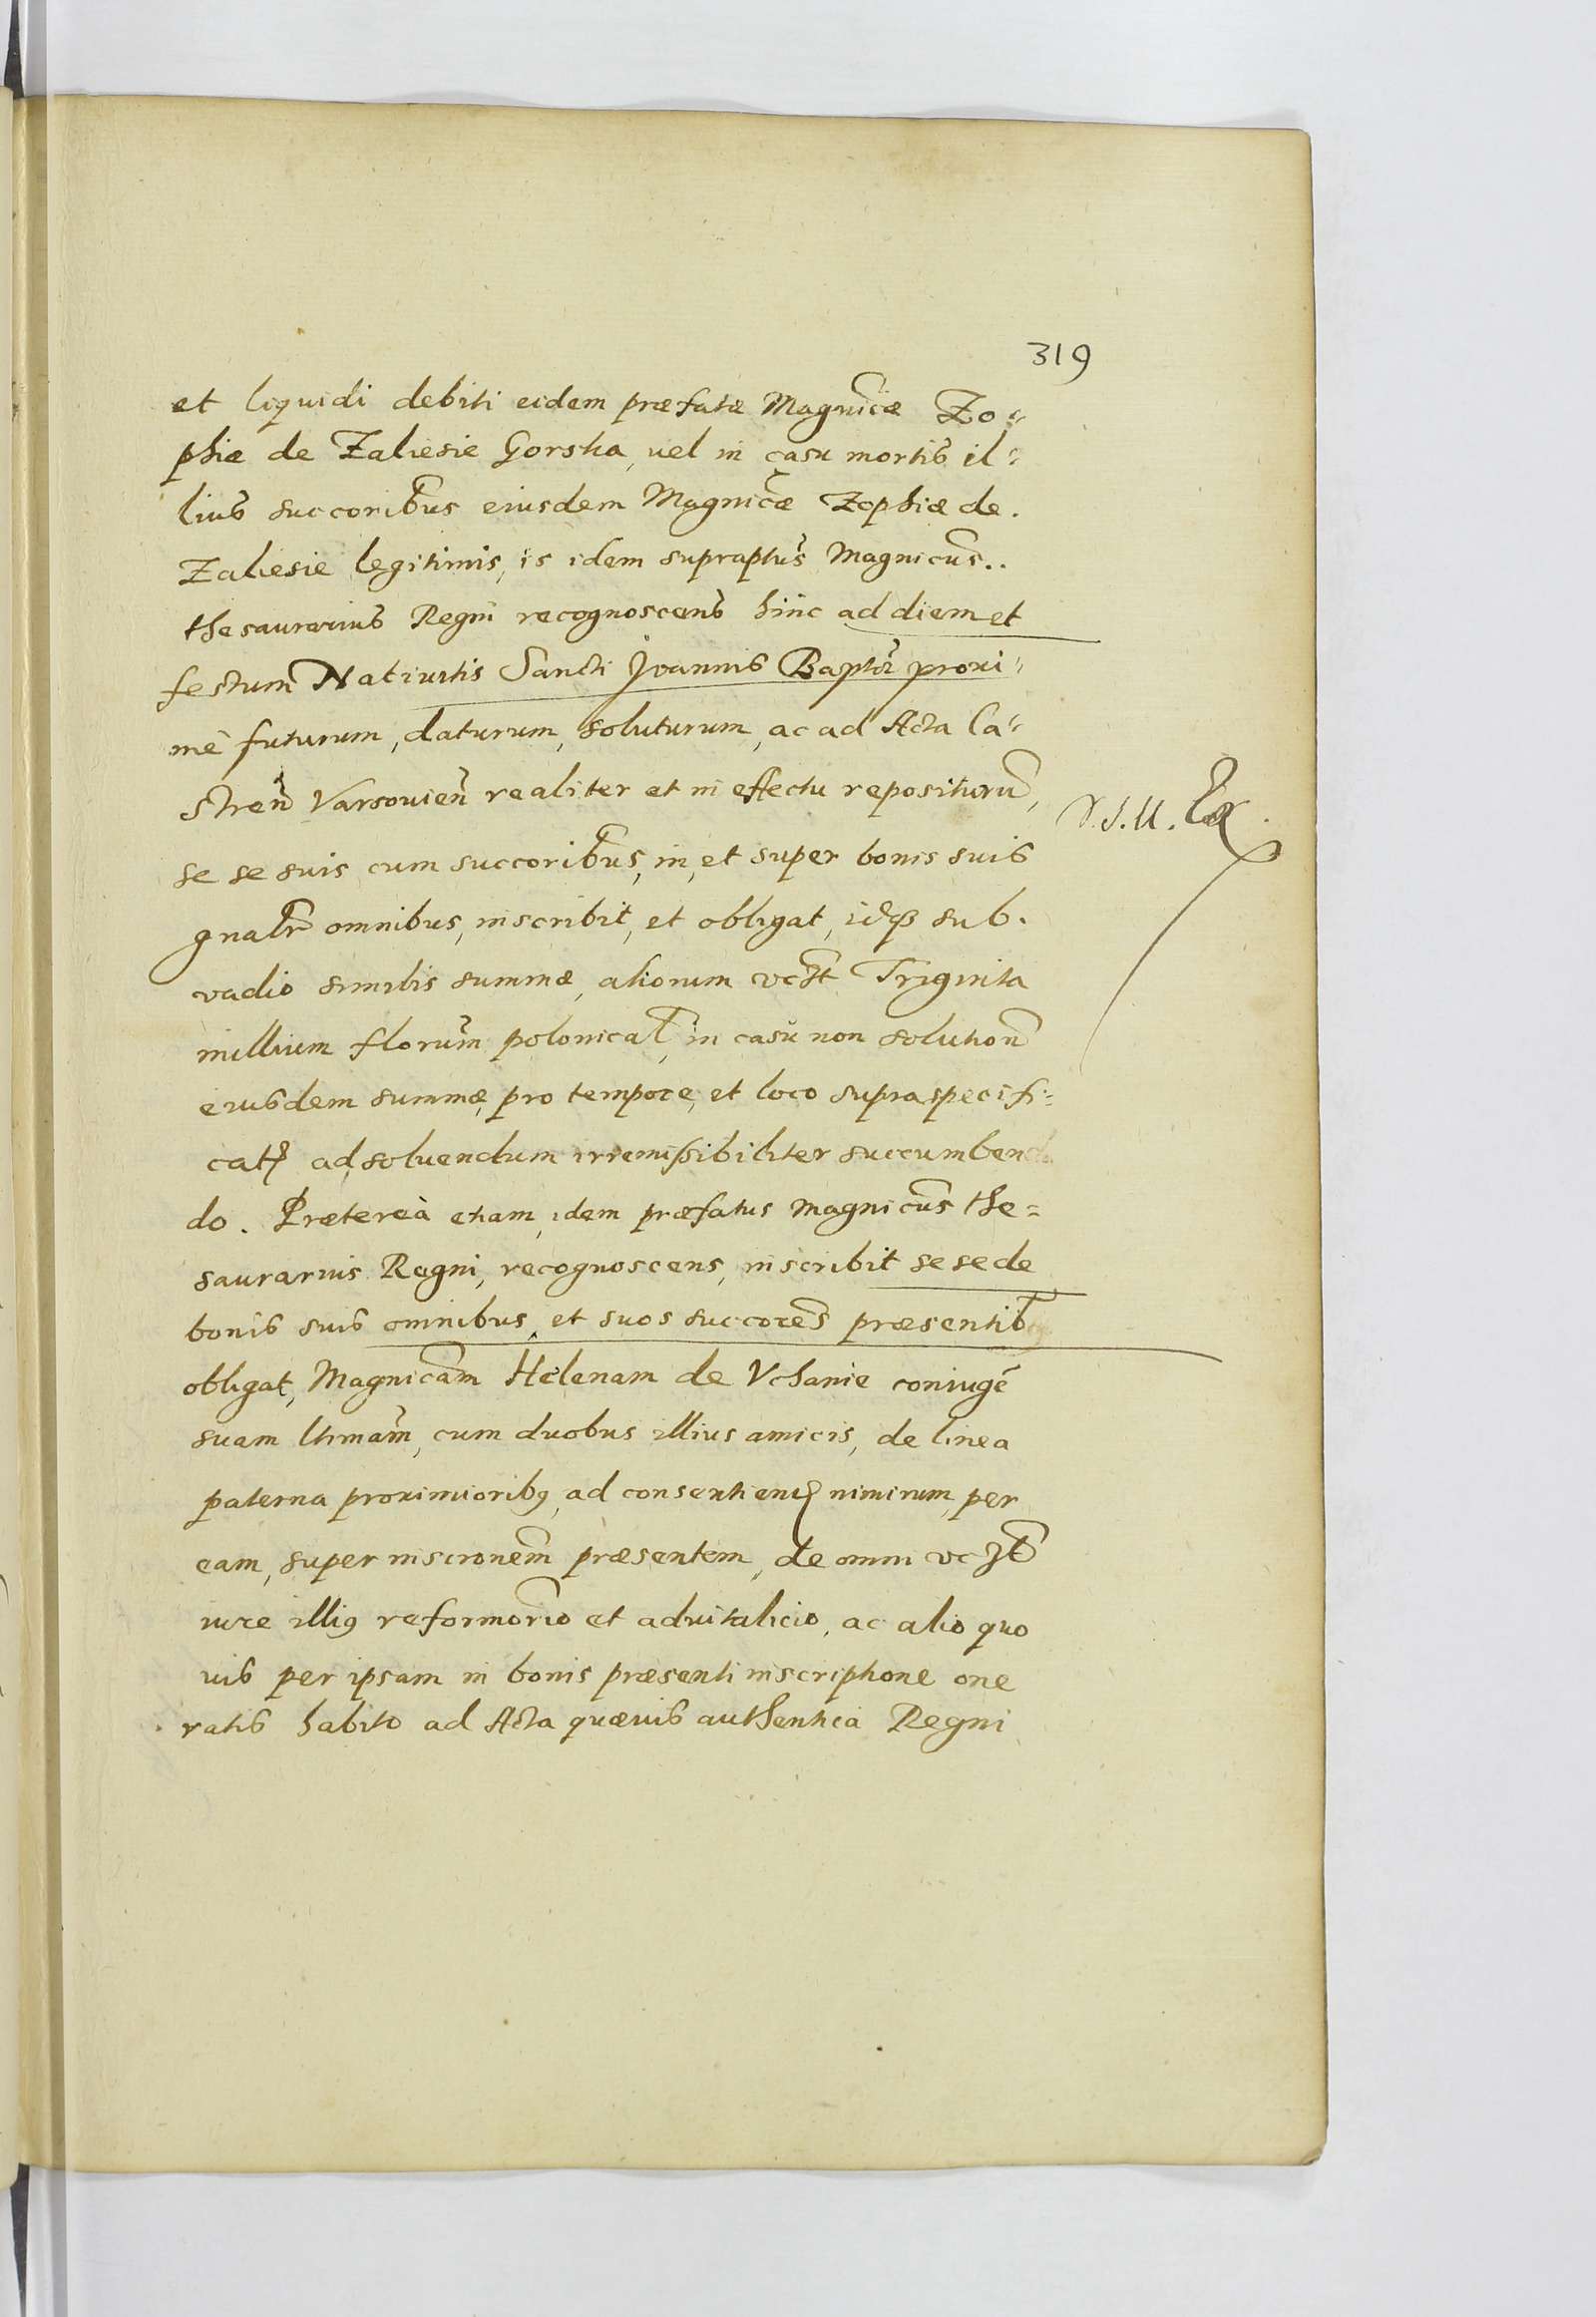 319
et liquidi debiti eidem præfatæ Magnicæ Zo=
phiæ de Zaliesie Gorska, uel in casu mortis il=
lius succoribus eiusdem Magnicæ Zophiæ de.
Zaliesie legitimis, is idem supraptus Magnicus..
thesaurarius Regni recognoscens hinc ad diem et
festum Natiuitis Sancti Joannis Baptæ proxi=
mè futurum, daturum, soluturum, ac ad Acta Ca=
stren Varsouien realiter et in effectu repositurum,
se se suis cum succoribus, in, et super bonis suis
gnalr omnibus, inscribit, et obligat, idq sub.
vadio similis summæ, aliorum vczt Triginta
millium florum polonical, in casu non solution
eiusdem summæ, pro tempore, et loco supraspecifi=
cat, ad soluendum irremissibiliter succumben
do. Præterea etiam, idem præfatus Magnicus the=
saurarius Regni, recognoscens, inscribit se se de
bonis suis omnibus, et suos succores præsentib
obligat, Magnicam Helenam de Vchanie coniugē
suam ltimam, cum duobus illius amicis, de linea
paterna proximiorib9, ad consentiend nimirum, per
eam, super inscronem præsentem, de omni vczt
iure illi9 reformorio et aduitalicio, ac alio quo
uis per ipsam in bonis præsenti inscriptione one
ratis habito ad Acta quæuis authentica Regni